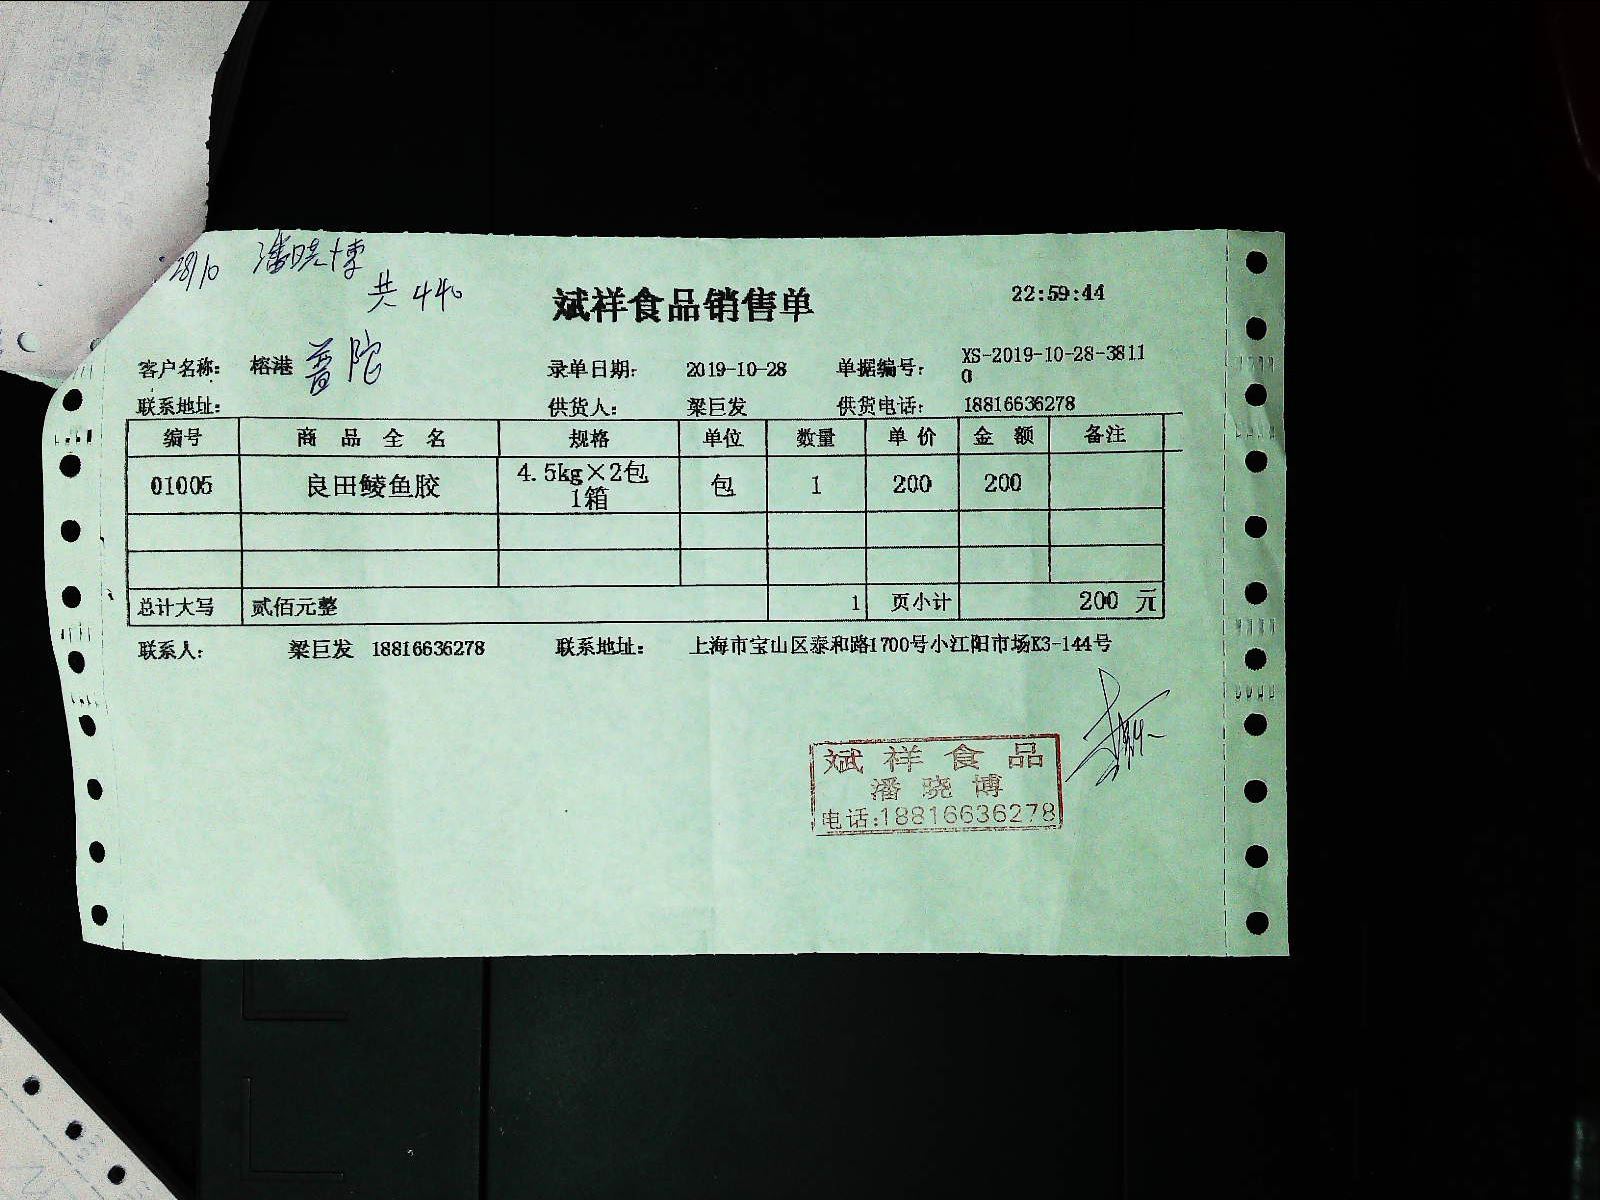 28/10 潘晓博
共 440
斌祥食品销售单
22:59:44
客户名称: 榕港 普陀 录单日期: 2019-10-28 单据编号: XS-2019-10-28-3811
0
联系地址: 供货人: 梁巨发 供货电话: 18816636278
编号 商 品 全 名 规格 单位 数量 单 价 金 额 备注
01005 良田鲮鱼胶 4.5kg×2包 包 1 200 200
1箱
总计大写 贰佰元整 1 页小计 200 元
联系人: 梁巨发 18816636278 联系地址: 上海市宝山区泰和路1700号小江阳市场K3-144号
斌祥食品
潘晓博
电话:18816636278